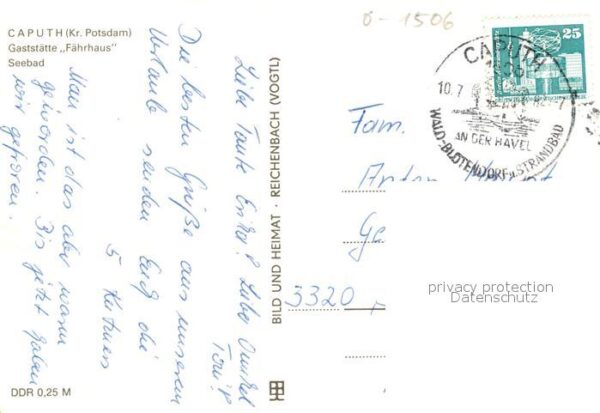 CAPUTH (Kr. Potsdam)
Gaststätte „Fährhaus"
Seebad
Liebe Tante Erika! Liebe Onkel
Toni!
Die besten Grüße aus unserem
Urlaube senden Euch die
5
Man ist das aber warm
geworden. Bis jetzt haben
wir gefroren.
DDR 0,25 M
BILD UND HEIMAT · REICHENBACH (VOGTL)
0-1506
25
CAPUTH
10.7
AN DER HAVEL
STRANDBAD
Fam.
Anton
Ge
3320
privacy protection
Datenschutz